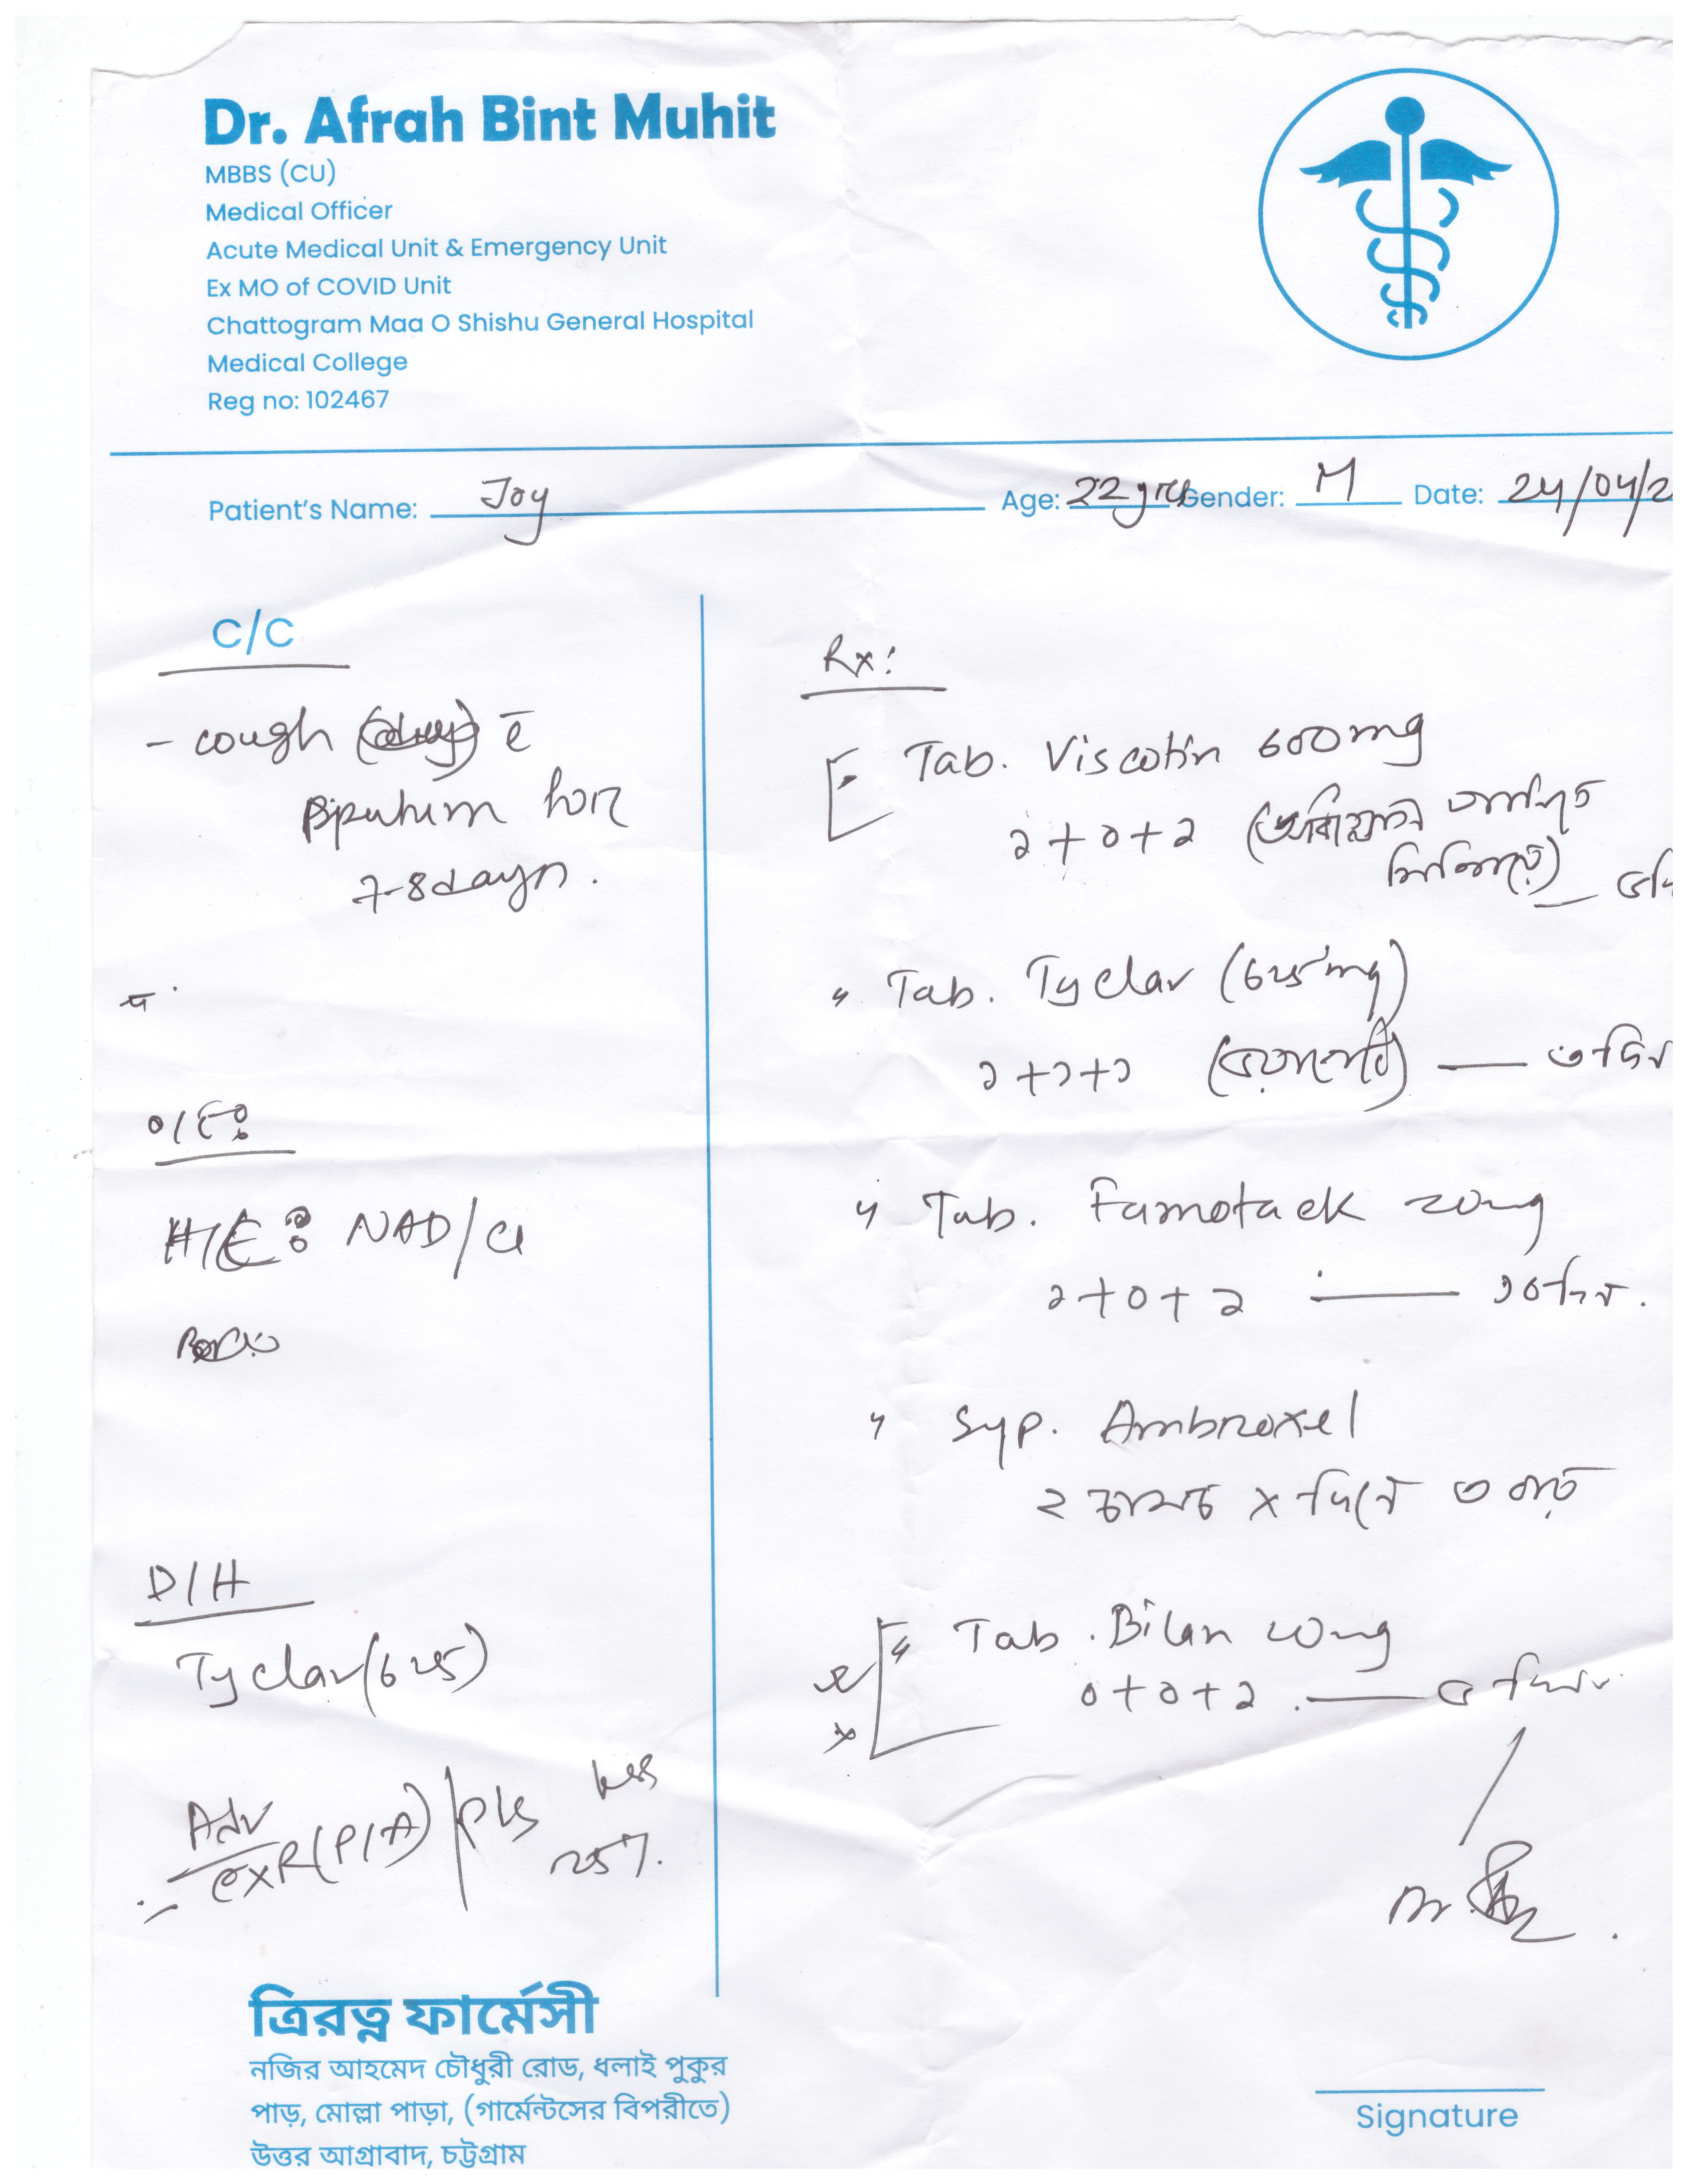 Dr. Afrah Bint Muhit
MBBS (CU)
Medical Officer
Acute Medical Unit & Emergency Unit
Ex MO of COVID Unit
Chattogram Maa O Shishu General Hospital
Medical College
Reg no: 102467
Patient's Name: Joy Age: 22 yrs Gender: M Date: 24/04/2
C/C
- cough
for
7-8 days.
O/E:
NAD
D/H
Tyclav (625)
Adv
CXR (P/A)
Rx:
Tab. Viscotin 600mg
১+০+১
Tab. Tyclav (625mg)
১+১+১ — ৩ দিন
Tab. Famotack 20mg
১+০+১ — ১০ দিন.
Syp. Ambroxel
২ চামচ x দিনে ৩ বার
Tab. Bilan 20mg
০+০+১ — ৫ দিন
ত্রিরত্ন ফার্মেসী
নজির আহমেদ চৌধুরী রোড, ধলাই পুকুর
পাড়, মোল্লা পাড়া, (গার্মেন্টসের বিপরীতে)
উত্তর আগ্রাবাদ, চট্টগ্রাম
Signature